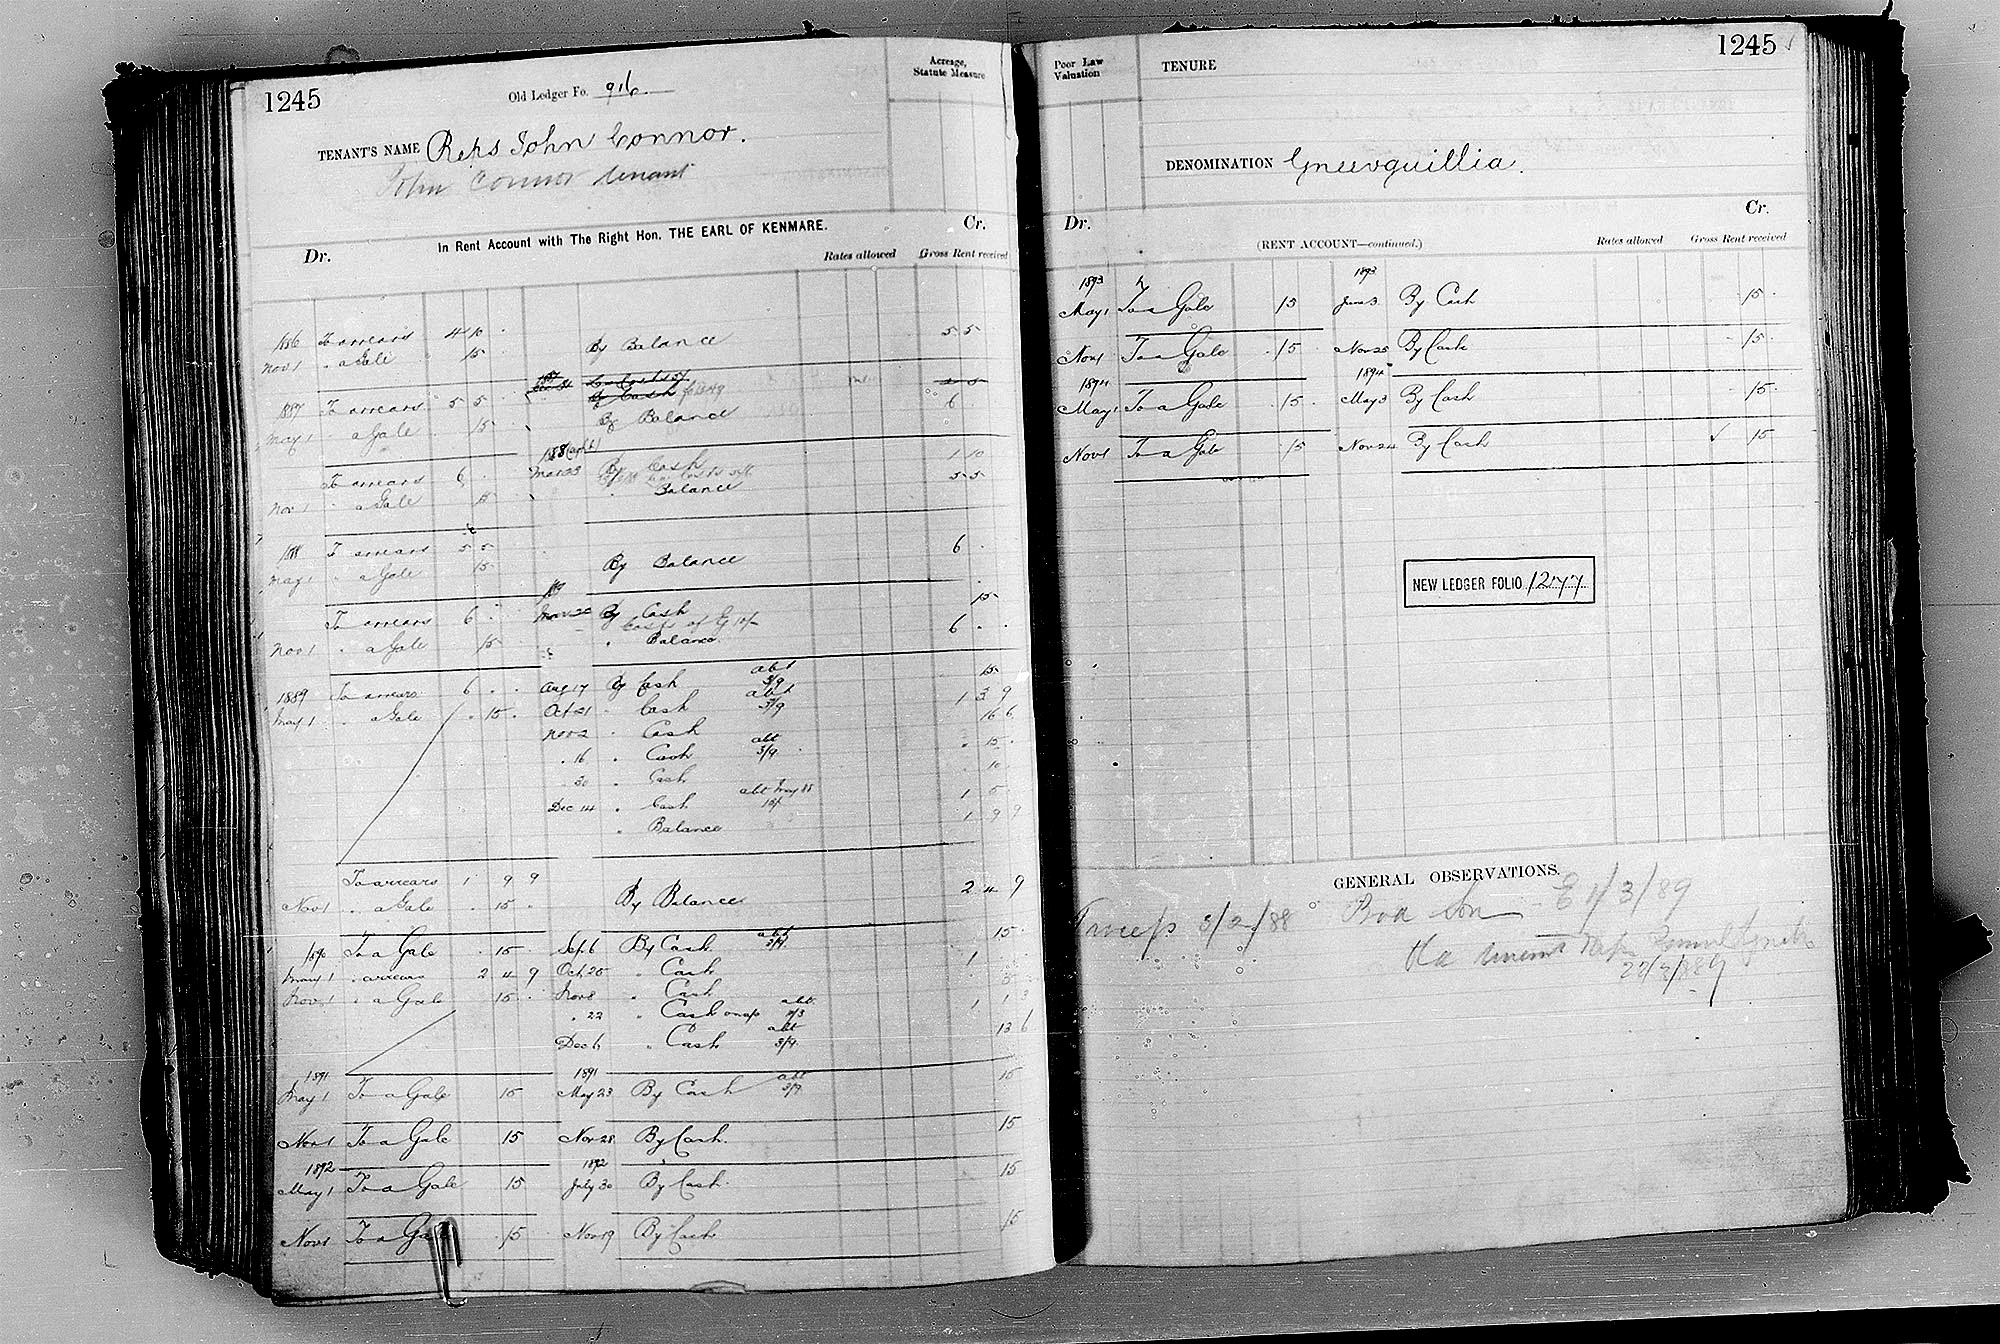 1245
Old Ledger Fo. 916
Acreage, Statute Measure
TENANT'S NAME Reps John Connor.
John Connor tenant
In Rent Account with The Right Hon. THE EARL OF KENMARE.
Dr. Cr.
Rates allowed Gross Rent received
1886 To arrears 4 10 .
Nov 1 " a Gale 15 . By Balance 5 5
1887 To arrears 5 5 . By Cash
May 1 " a Gale 15 By Balance 6 .
To arrears 6 . Mar 23 By Cash 1 10
Nov 1 " a Gale 15 " Balance 5 5
1888 To arrears 5 5
May 1 " a Gale 15 By Balance 6 .
To arrears 6 . Mar 20 By Cash 15
Nov 1 " a Gale 15 . " Balance 6 . .
1889 To arrears 6 . . Aug 17 By Cash abt 3/9 15
May 1 " a Gale . 15 . Oct 21 " Cash abt 3/9 1 3 9
Nov 2 " Cash 16 6
" 16 " Cash abt 3/9 " 15 .
" 30 " Cash " 10
Dec 14 " Cash abt May 88 15/ 1 5
" Balance 1 9 9
To arrears 1 9 9
Nov 1 " a Gale . 15 . By Balance 2 4 9
1890 To a Gale . 15 . Sep 6 By Cash abt 3/9 15
May 1 " arrears 2 4 9 Oct 25 " Cash 1
Nov 1 " a Gale 15 . Nov 8 " Cash 5
" 22 " Cash on a/c abt 1 1 3
Dec 6 " Cash abt 3/9 13 6
1891 1891
May 1 To a Gale 15 May 23 By Cash abt 3/9 15
Nov 1 To a Gale 15 Nov 28 By Cash. 15
1892 1892
May 1 To a Gale 15 July 30 By Cash 15
Nov 1 To a Gale 15 Nov 19 By Cash 15
1245
Poor Law Valuation
TENURE
DENOMINATION Gneevguillia.
Dr. Cr.
(RENT ACCOUNT—continued.)
Rates allowed Gross Rent received
1893 1893
May 1 To a Gale 15 June 3 By Cash 15 .
Nov 1 To a Gale . 15 . Nov 25 By Cash 15 .
1894 1894
May 1 To a Gale . 15 . May 3 By Cash 15 .
Nov 1 To a Gale 15 Nov 24 By Cash ✓ 15
NEW LEDGER FOLIO 1277
GENERAL OBSERVATIONS.
3/2/88 son E 1/3/89
tenant